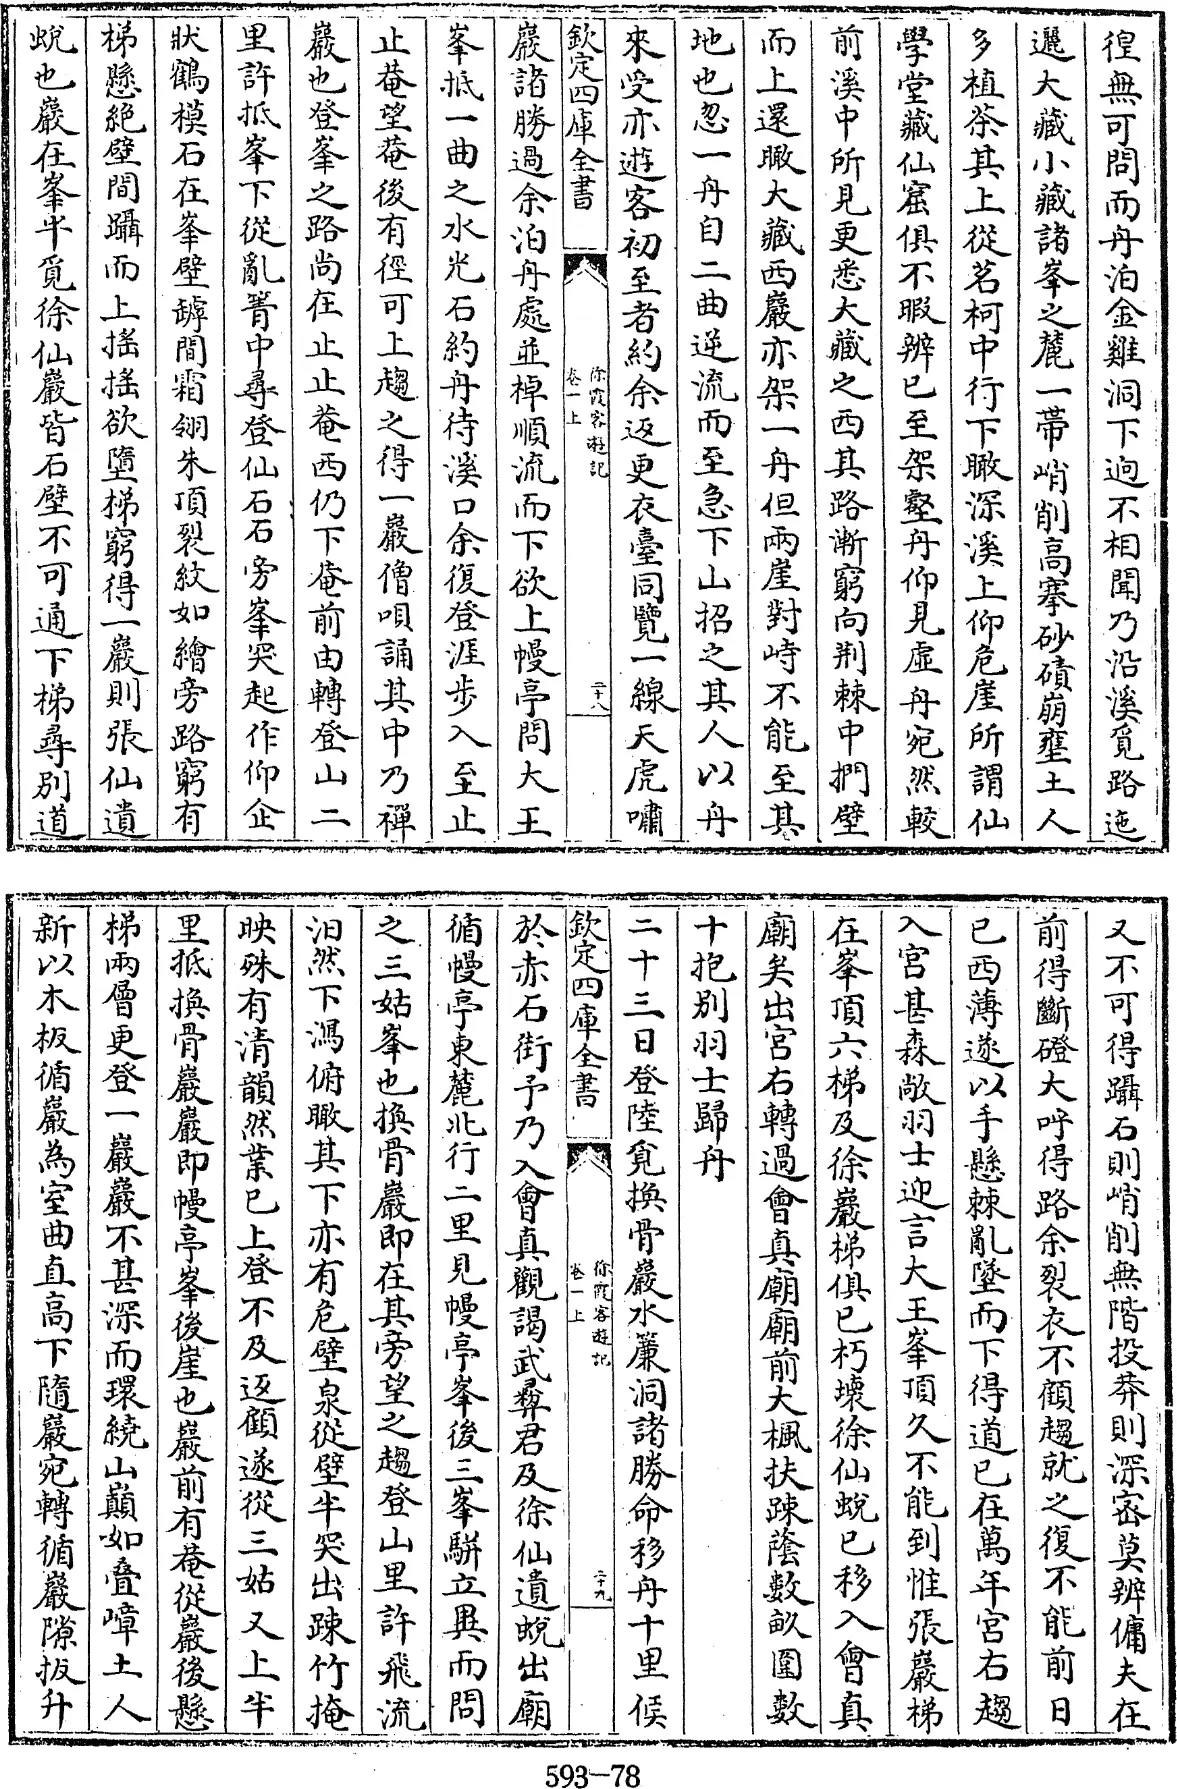 徨無可問而舟泊金雞洞下迥不相聞乃沿溪覓路迤
邐大藏小藏諸峯之麓一帶峭削高搴砂磧崩壅土人
多植茶其上從茗柯中行下瞰深溪上仰危崖所謂仙
學堂藏仙窟俱不暇辨已至架壑舟仰見虛舟宛然較
前溪中所見更悉大藏之西其路漸窮向荆棘中捫壁
而上還瞰大藏西巖亦架一舟但兩崖對峙不能至其
地也忽一舟自二曲逆流而至急下山招之其人以舟
來受亦遊客初至者約余返更衣臺同覽一線天虎嘯
欽定四庫全書
徐霞客遊記
卷一上
二十八
巖諸勝過余泊舟處並棹順流而下欲上幔亭問大王
峯抵一曲之水光石約舟待溪口余復登涯步入至止
止菴望菴後有徑可上趨之得一巖僧唄誦其中乃禪
巖也登峯之路尚在止止菴西仍下菴前由轉登山二
里許抵峯下從亂箐中尋登仙石石旁峯突起作仰企
狀鶴模石在峯壁罅間霜翎朱頂裂紋如繪旁路窮有
梯懸絶壁間躡而上搖搖欲墮梯窮得一巖則張仙遺
蛻也巖在峯半覓徐仙巖皆石壁不可通下梯尋别道
又不可得躡石則峭削無階投莽則深密莫辨傭夫在
前得斷磴大呼得路余裂衣不顧趨就之復不能前日
已西薄遂以手懸棘亂墜而下得道已在萬年宮右趨
入宮甚森敞羽士迎言大王峯頂久不能到惟張巖梯
在峯頂六梯及徐巖梯俱已朽壞徐仙蛻已移入會真
廟矣出宮右轉過會真廟廟前大楓扶疎蔭數畝圍數
十抱别羽士歸舟
二十三日登陸覓換骨巖水簾洞諸勝命移舟十里候
欽定四庫全書
徐霞客遊記
卷一上
二十九
於赤石街予乃入會真觀謁武彝君及徐仙遺蛻出廟
循幔亭東麓北行二里見幔亭峯後三峯駢立異而問
之三姑峯也換骨巖即在其旁望之趨登山里許飛流
汩然下瀉俯瞰其下亦有危壁泉從壁半突出疎竹掩
映殊有清韻然業已上登不及返顧遂從三姑又上半
里抵換骨巖巖即幔亭峯後崖也巖前有菴從巖後懸
梯兩層更登一巖巖不甚深而環繞山巔如疊嶂土人
新以木板循巖為室曲直高下隨巖宛轉循巖隙扳升
593-78